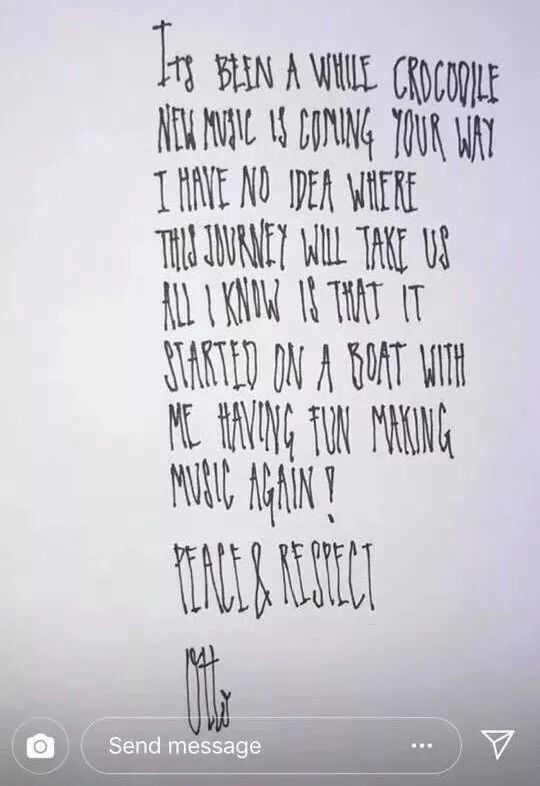 ITS BEEN A WHILE CROCODILE
NEW MUSIC IS COMING YOUR WAY
I HAVE NO IDEA WHERE
THIS JOURNEY WILL TAKE US
ALL I KNOW IS THAT IT
STARTED ON A BOAT WITH
ME HAVING FUN MAKING
MUSIC AGAIN!
PEACE & RESPECT
Otto
Send message